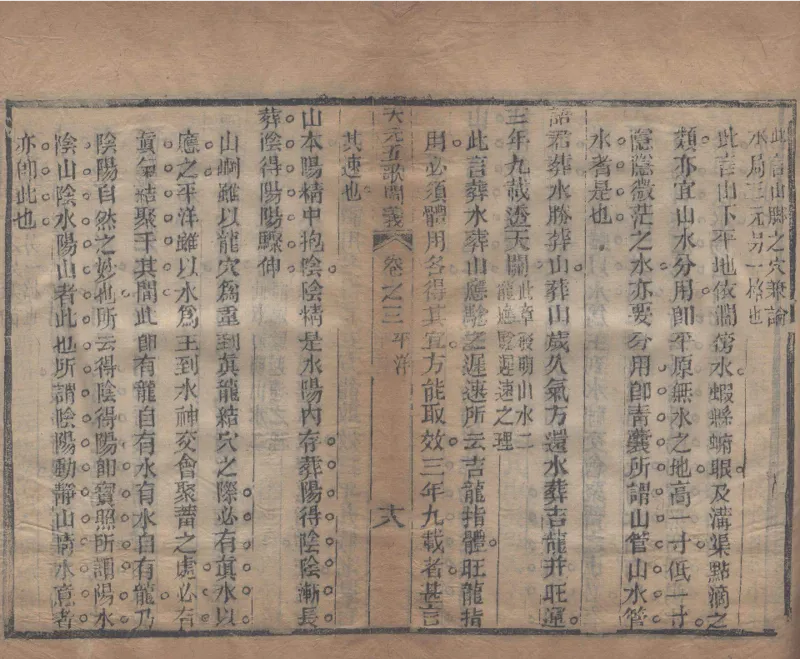 此言山脚之穴兼論
水局三元另一格也
此言山下平地依澗傍水蝦鬚蝌眼及溝渠點滴之
類亦宜山水分用卽平原無水之地高一寸低一寸
隱隱微茫之水亦要分用卽靑囊所謂山管山水管
水者是也
語君葬水勝葬山葬山歲久氣方還水葬吉龍并旺運
三年九載透天關
此章發明山水二
龍應驗遲速之理
此言葬水葬山應驗之遲速所云吉龍指體旺龍指
用必須體用各得其宜方能取效三年九載者甚言
天元五歌闡義
卷之三
平洋
十八
其速也
山本陽精中抱陰陰精是水陽內存葬陽得陰陰漸長
葬陰得陽陽驟伸
山崗雖以龍穴爲重到眞龍結穴之際必有眞水以
應之平洋雖以水爲主到水神交會聚蓄之處必有
眞氣結聚于其間此卽有龍自有水有水自有龍乃
陰陽自然之妙也所云得陰得陽卽寶照所謂陽水
陰山陰水陽山者此也所謂陰陽動靜山情水意者
亦卽此也